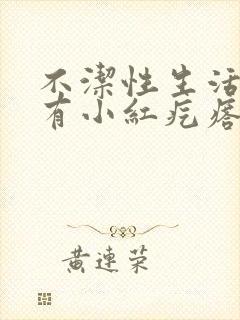 不潔性生活
有小紅疙瘩
黃連榮